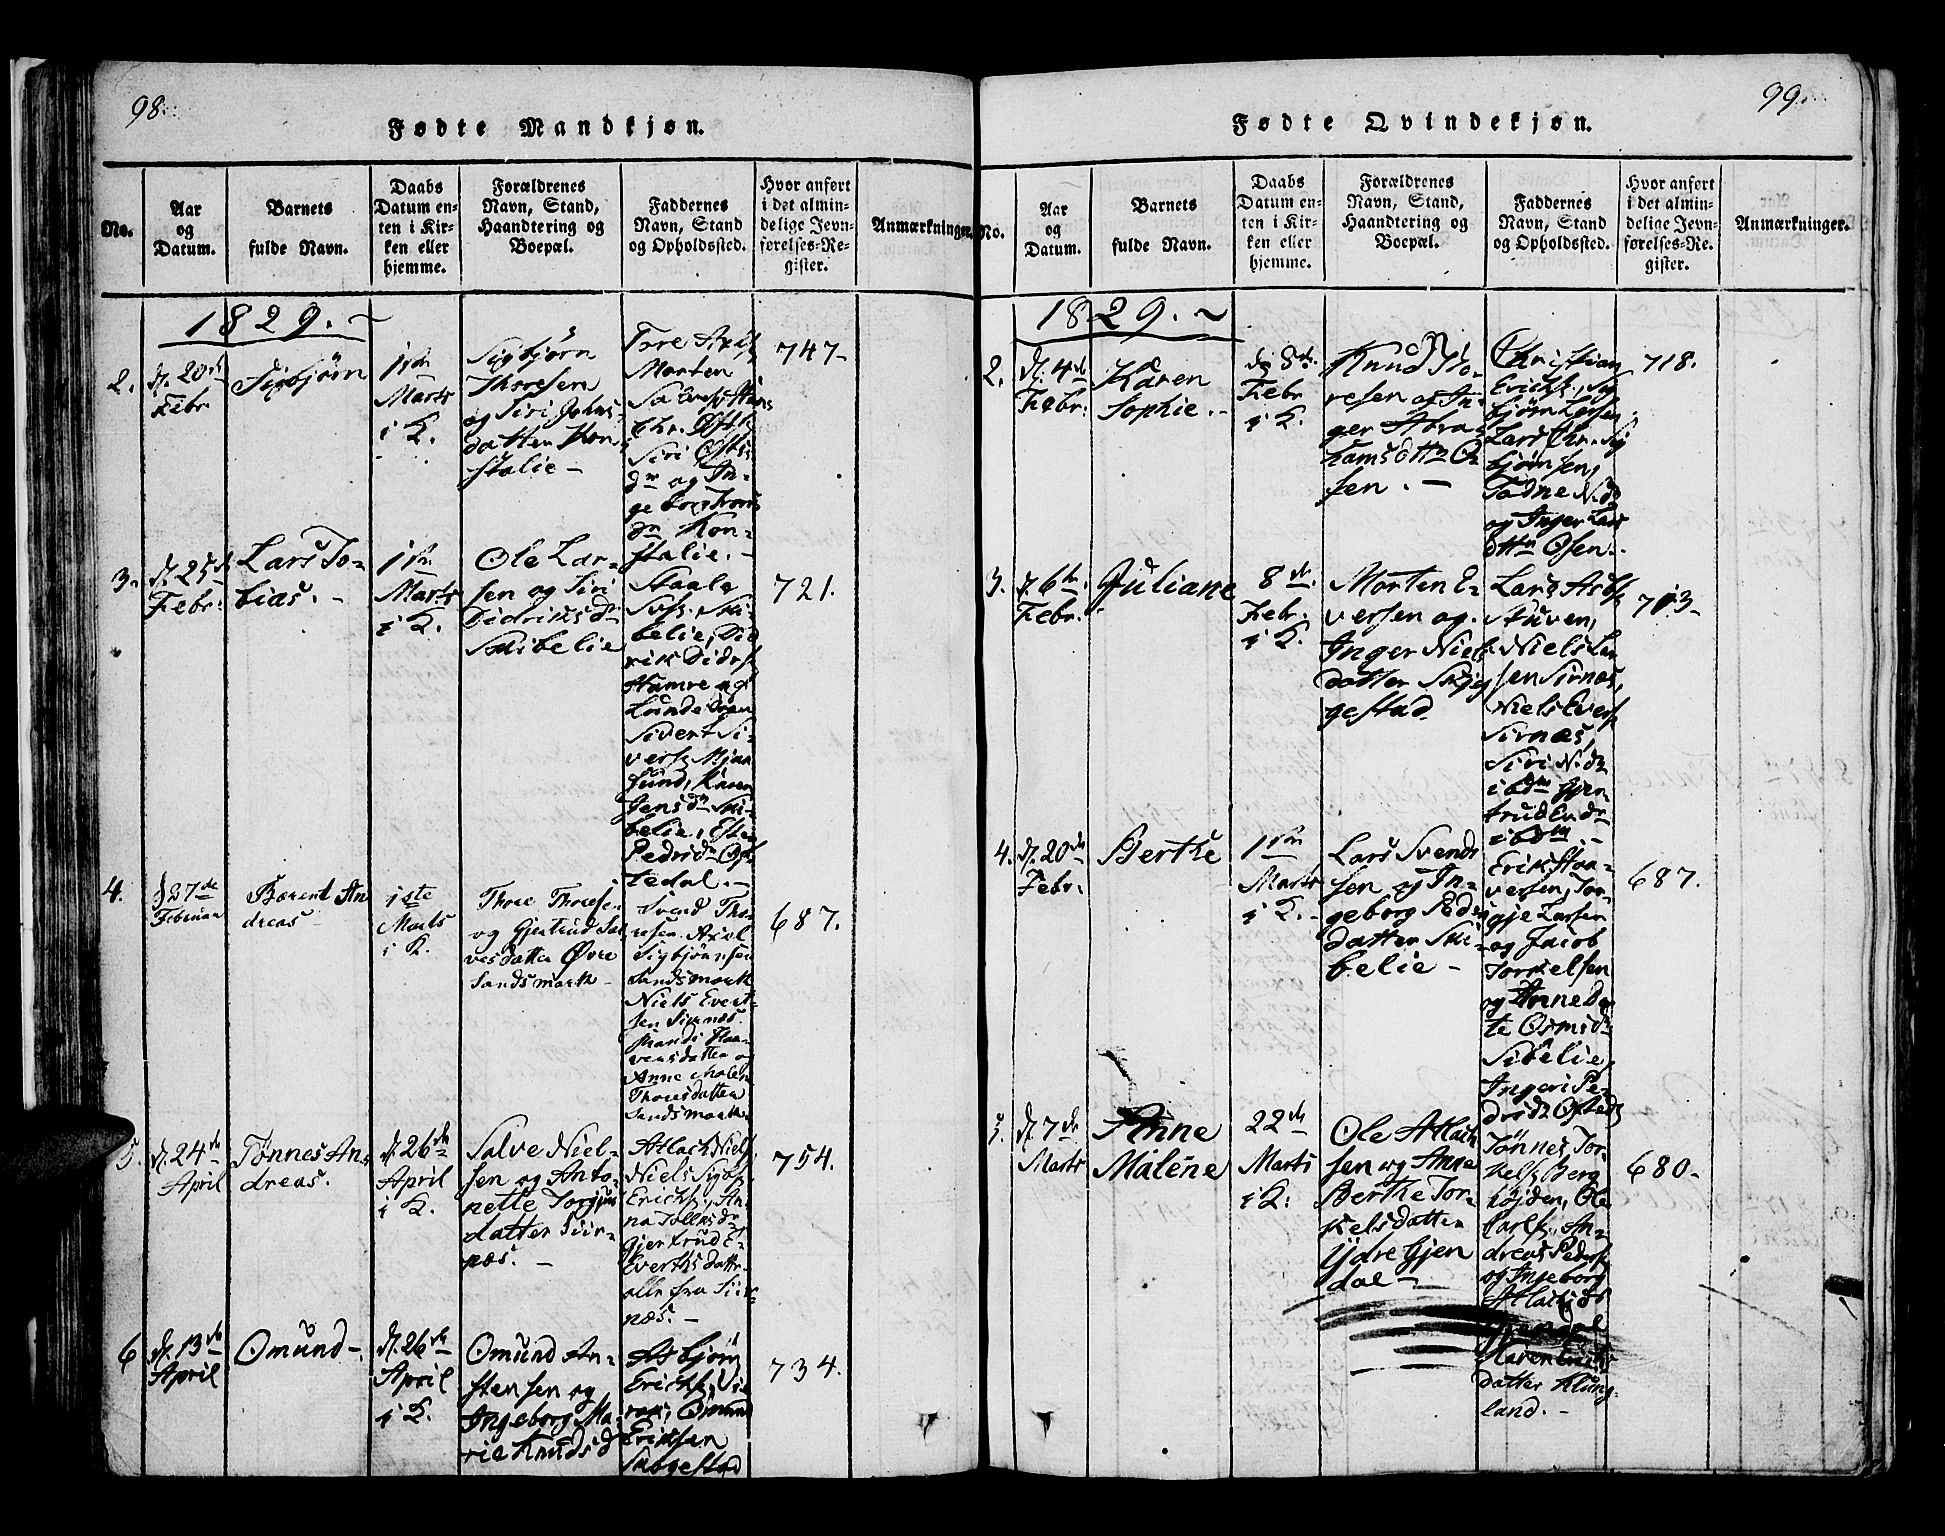 98.
Fødte Mandkjøn.
No.
Aar
og
Datum.
Barnets
fulde Navn.
Daabs
Datum en-
ten i Kir-
ken eller
hjemme.
Forældrenes
Navn, Stand,
Haandtering og
Boepæl.
Faddernes
Navn, Stand
og Opholdssted.
Hvor anført
i det almin-
delige Jevn-
førelses-Re-
gister.
Anmærkninger.
1829.
2.
d. 20d
Febr
Sigbjørn
1ste
Marts
i K.
Sigbjørn
Thoresen
og Siri Johns-
datter
stalie -
Tore
Morten
Siri
og In-
Kon-
stalie. -
747-
3.
d. 25d
Febr:
Lars To-
bias. -
1ste
Marts
i K.
Ole Lar-
sen og Siri
Didriksd
Skibelie
Staale
Ski-
belie, Did
rik Didrs
Hamre og
Sivert Si-
sund, Karen
Jensd Ski-
belie,
Pedrsd Øf-
tedal. -
721.
4.
d 27de
Februar
Barent An
dreas -
1ste
Marts
i K.
Thore Thores.
og Gjertrud Sal
vesdatter Øvre
Sandsmark -
Svend Tho-
resen. Axel
Sigbjørnsen
Sandsmark
Niels Evert-
sen Sirnæs
vensdatter og
Anne Malene
Thoresdatter
Sandsmark
687.
5.
d. 24d
April
Tønnes An-
dreas.
d. 26d
April
i K.
Salve Niel-
sen og Anto-
nette Torjus
datter Siir-
næs. -
Atlach Niels
Niels Sigbs
Erichs., An-
na Tollasdr
Gjertrud E-
Everthsdattr
alle fra Siir-
næs. -
754.
6
d. 13d
April
Omund -.
d. 26d
April
i K.
Omund An-
stensen og
Ingeborg Ma-
rie Knudsd
Asbjørn
Erichs,
Omund
Eriksen
734.
99.
Fødte Qvindekjøn.
No.
Aar
og
Datum.
Barnets
fulde Navn.
Daabs
Datum en-
ten i Kir-
ken eller
hjemme.
Forældrenes
Navn, Stand,
Haandtering og
Boepæl.
Faddernes
Navn, Stand
og Opholdssted.
Hvor anført
i det almin-
delige Jevn-
førelses-Re-
gister.
Anmærkninger.
1829.
2.
d. 4d
Febr:
Karen
Sophie. -
d. 8d.
Febr
i K.
Knud To-
resen og In-
ger Abra-
hamsdttr O-
sen. -
Christian
Erichs., Sig
bjørn Larsen
Lars Chr. Sig
bjørnsen,
Tadne N.d
og Inger Lars
dttr Osen. -
718.
3.
d. 6te
Febr:
Juliane
8d.
Febr.
i K.
Morten E-
versen og
Inger Niels
datter Skjeg
gestad.
Lars Asbs
Stuven,
Niels Lar
sen Sirnæs,
Niels Evers
Sirnæs,
Siri N.d
ibdm Gjer-
trud Ev.d
ibdm. -
703-
4.
d. 20d
Febr:
Berthe
1ste
Marts
i K. -
Lars Svend
sen og In-
geborg Peders
datter Ski-
belie -
Erik Staa-
versen, Tor-
gje Larsen
og Jacob
Torkelsen
og Anne Dor
te Osmsd
Sibelie,
Ingeri Pe-
drsd Øfted
687.
5.
d. 7d
Marts
Anne
Malene
22d
Marts
i K:
Ole Atlach
sen og Anne
Berthe Tor-
kelsdatter
Ydre Gjen
dal -
Tønnes Tor-
kels, Berg
højden, Ole
Carls., An-
dreas Peders
og Ingeborg
Atlachsd
Gjendal
Maren Erichs
datter Klung-
land. -
680-